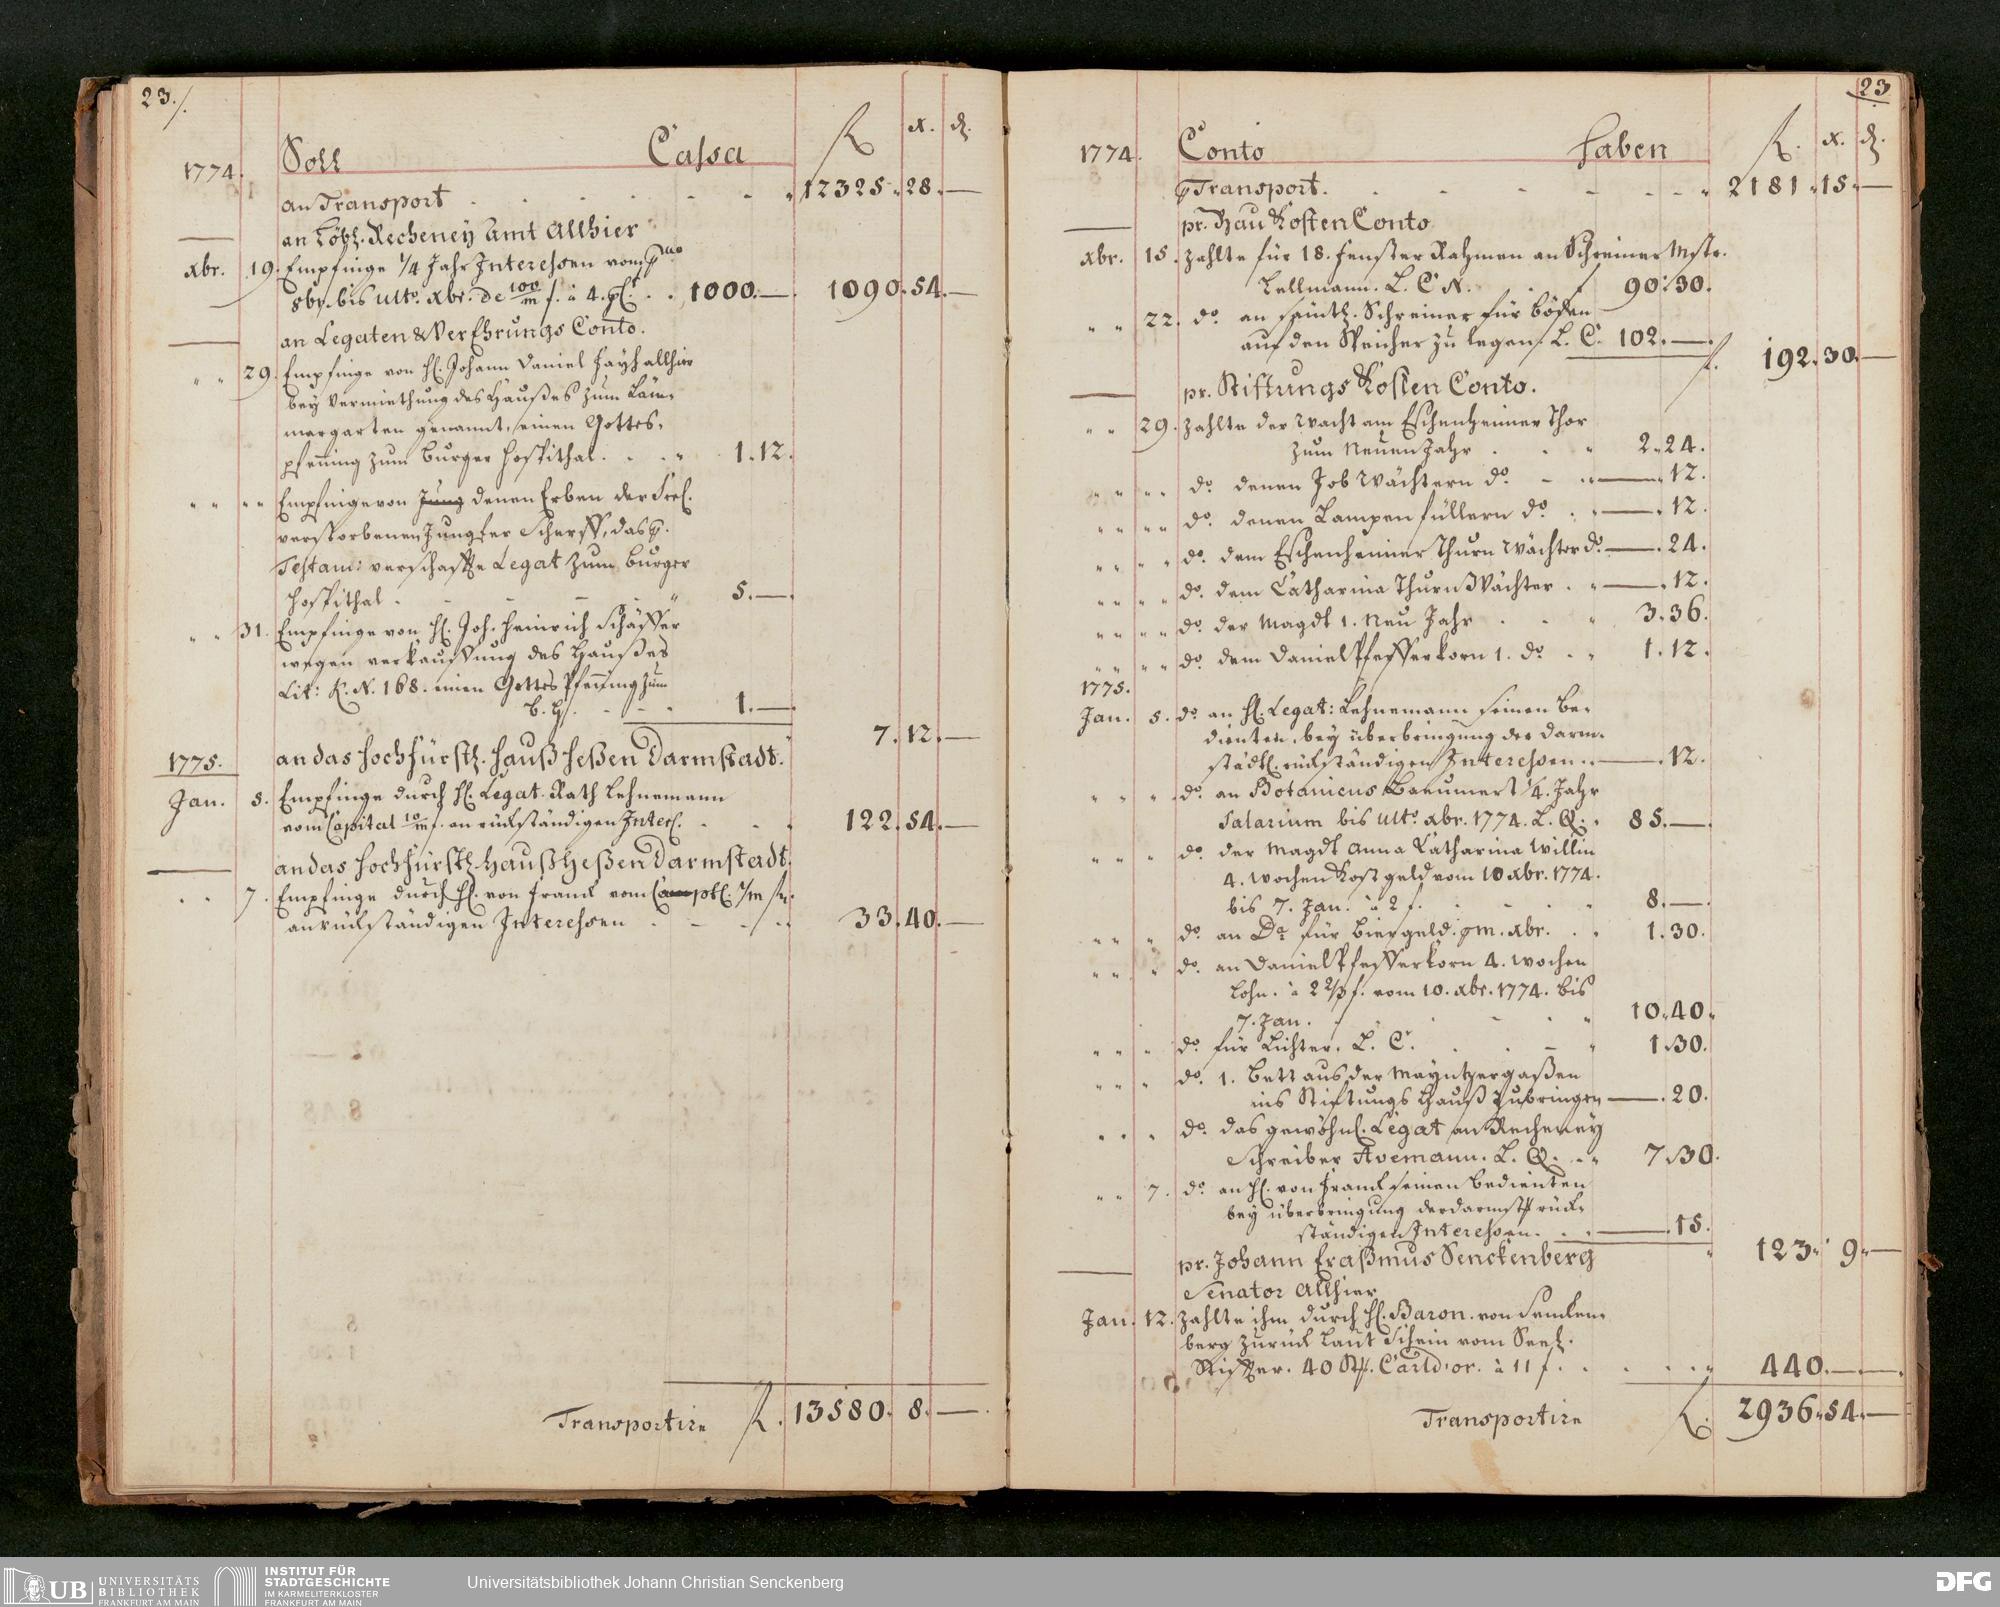 23./.
1774. Soll Cassa f x. d.
an Transport 12325. 28. —
an Löbl. Recheney Amt Allhier
xbr. 19. Empfinge 1/4 Jahr Interessen vom pmo
8br. bis ulto. xbr. de 100/m f. à 4. pCt. 1000. —. 1090. 54. —
an Legaten & VerEhrungs Conto.
" " 29. Empfinge von H. Johann Daniel Fayh allhier
bey Vermiethung des Haußes zum Läm-
mergarten genannt, einen Gottes-
pfenning zum Burger Hospithal. 1. 12.
" " " " Empfinge von Jung denen Erben der Seel.
verstorbenen Jungfer Scherff, das p.
Testam: verschaffte Legat zum Burger
Hospithal. 5. —.
" " 31. Empfinge von H. Joh. Heinrich Schäffer
wegen verkauffung des Haußes
Lit: K. N. 168. einen Gottes Pfenning zum
B. H. 1. —.
7. 12. —
1775. an das Hochfürstl. Hauß Heßen Darmstadt.
Jan. 5. Empfinge durch H. Legat. Rath Lehnemann
vom Capital 10/m f. an rückständigen Interes. 122. 54. —
an das Hochfürstl. Hauß Heßen Darmstadt.
" " 7. Empfinge durch H. von Franck vom Capitl. /m f.
an rückständigen Interessen 33. 40. —
Transportire f. 13580. 8. —
23
1774. Conto Haben f. x. d.
p Transport. 2181. 15. —
pr. Bau Kosten Conto
xbr. 15. Zahlte für 18. Fenster Rahmen an Schreiner Mstr.
Lellmann. L. C N. 90. 30.
" " 22. do. an sämtl. Schreiner für Böden
auf den Speicher zu legen. L. C. 102. —.
f. 192. 30. —
pr. Stiftungs Kosten Conto.
" " 29. Zahlte der Wacht am Eschenheimer Thor
zum Neuen Jahr 2. 24.
" " " " do. denen Job Wächtern do. — 12.
" " " " do. denen Lampen füllern do. — . 12.
" " " " do. dem Eschenheimer Thurn Wächter do. — . 24.
" " " " do. dem Catharina Thurn Wächter — . 12.
" " " " do. der Magdt 1. Neu Jahr 3. 36.
" " " " do. dem Daniel Pfefferkorn 1. do. 1. 12.
1775.
Jan. 5. do. an H. Legat: Lehnemann seinen Be-
dienten, bey überbringung der Darm-
städtl. rückständigen Interessen — . 12.
" " " do. an Botanicus Baeumert 1/4. Jahr
Salarium bis ulto. xbr. 1774. L. Q. 85. —.
" " " do. der Magdt Anna Catharina Willin
4. Wochen Kost geld vom 10 xbr. 1774.
bis 7. Jan. à 2 f. 8. —.
" " " do. an Do. für Biergeld. p m. xbr. 1. 30.
" " " do. an Daniel Pfefferkorn 4. Wochen
Lohn. à 2 2/3 f. vom 10. xbr. 1774. bis
7. Jan. 10. 40.
" " " do. für Lichter. L. C. 1. 30.
" " " do. 1. Bett aus der Mayntzergaßen
ins Stiftungs Hauß zu bringen — . 20.
" " " do. das gewöhnl. Legat an Recheney
Schreiber Avemann. L. Q. 7. 30.
" " 7. do. an H. von Franck seinen Bedienten
bey überbringung der Darmst. rück-
ständigen Interessen. — . 15.
123. 9. —
pr. Johann Eraßmus Senckenberg
Senator Allhier
Jan. 12. Zahlte ihm durch H. Baron. von Sencken-
berg zurück Laut Schein vom Seel.
Stiffter. 40 St. Carld'or. à 11 f. 440. — —
Transportire f. 2936. 54. —
UB UNIVERSITÄTS
BIBLIOTHEK
FRANKFURT AM MAIN
INSTITUT FÜR
STADTGESCHICHTE
IM KARMELITERKLOSTER
FRANKFURT AM MAIN
Universitätsbibliothek Johann Christian Senckenberg
DFG